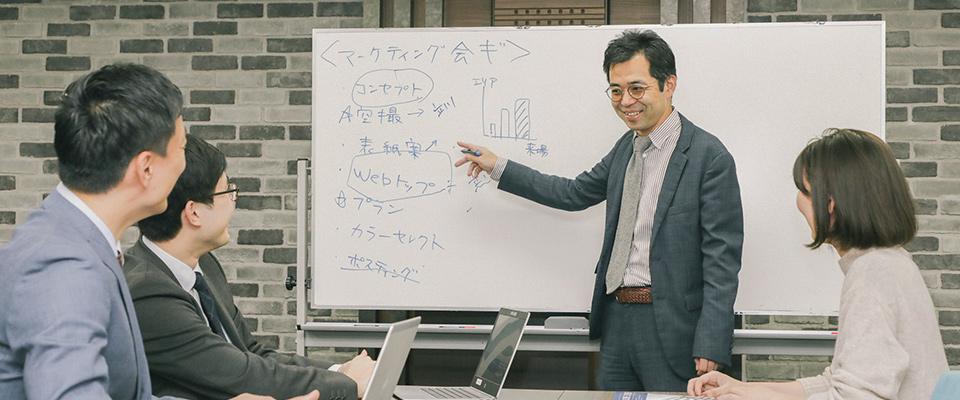 <マーケティング会ギ>
・コンセプト
A 空撮→
・表紙案
Webトップ
B プラン
・カラーセレクト
・ポスティング
来場